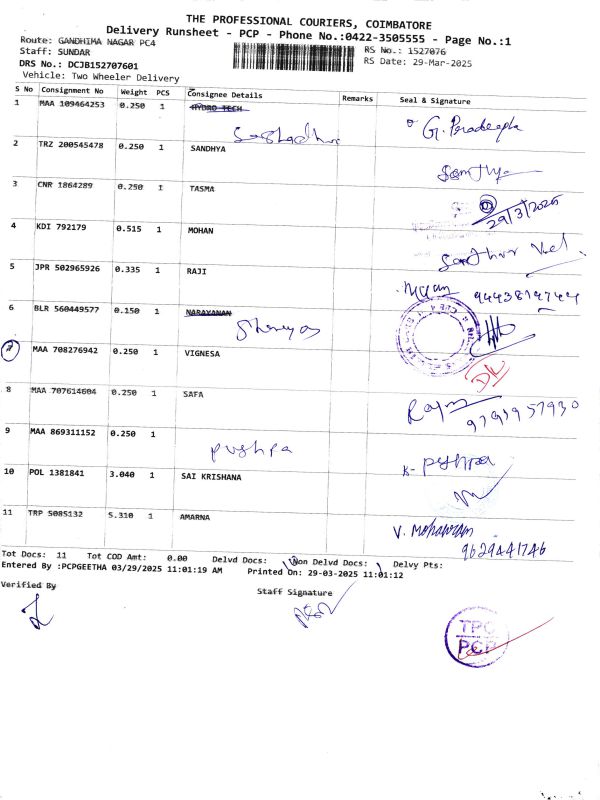 THE PROFESSIONAL COURIERS, COIMBATORE
Delivery Runsheet - PCP - Phone No.:0422-3505555 - Page No.:1
Route: GANDHIMA NAGAR PC4
RS No.: 1527076
Staff: SUNDAR
RS Date: 29-Mar-2025
DRS No.: DCJB152707601
Vehicle: Two Wheeler Delivery
S No Consignment No Weight PCS Consignee Details Remarks Seal & Signature
1 MAA 109464253 0.250 1 HYDRO TECH
G. Pradeepha
2 TRZ 200545478 0.250 1 SANDHYA
3 CNR 1864289 0.250 1 TASMA
29/3/2025
4 KDI 792179 0.515 1 MOHAN
5 JPR 502965926 0.335 1 RAJI
6 BLR 560449577 0.150 1 NARAYANAN
Shreyas
7 MAA 708276942 0.250 1 VIGNESA
8 MAA 707614604 0.250 1 SAFA
9 MAA 869311152 0.250 1
pushpa
K- pushpa
10 POL 1381841 3.040 1 SAI KRISHANA
11 TRP 5085132 5.310 1 AMARNA
9629441746
Tot Docs: 11 Tot COD Amt: 0.00 Delvd Docs: Non Delvd Docs: Delvy Pts:
Entered By :PCPGEETHA 03/29/2025 11:01:19 AM Printed On: 29-03-2025 11:01:12
Verified By
Staff Signature
TPC
PCP